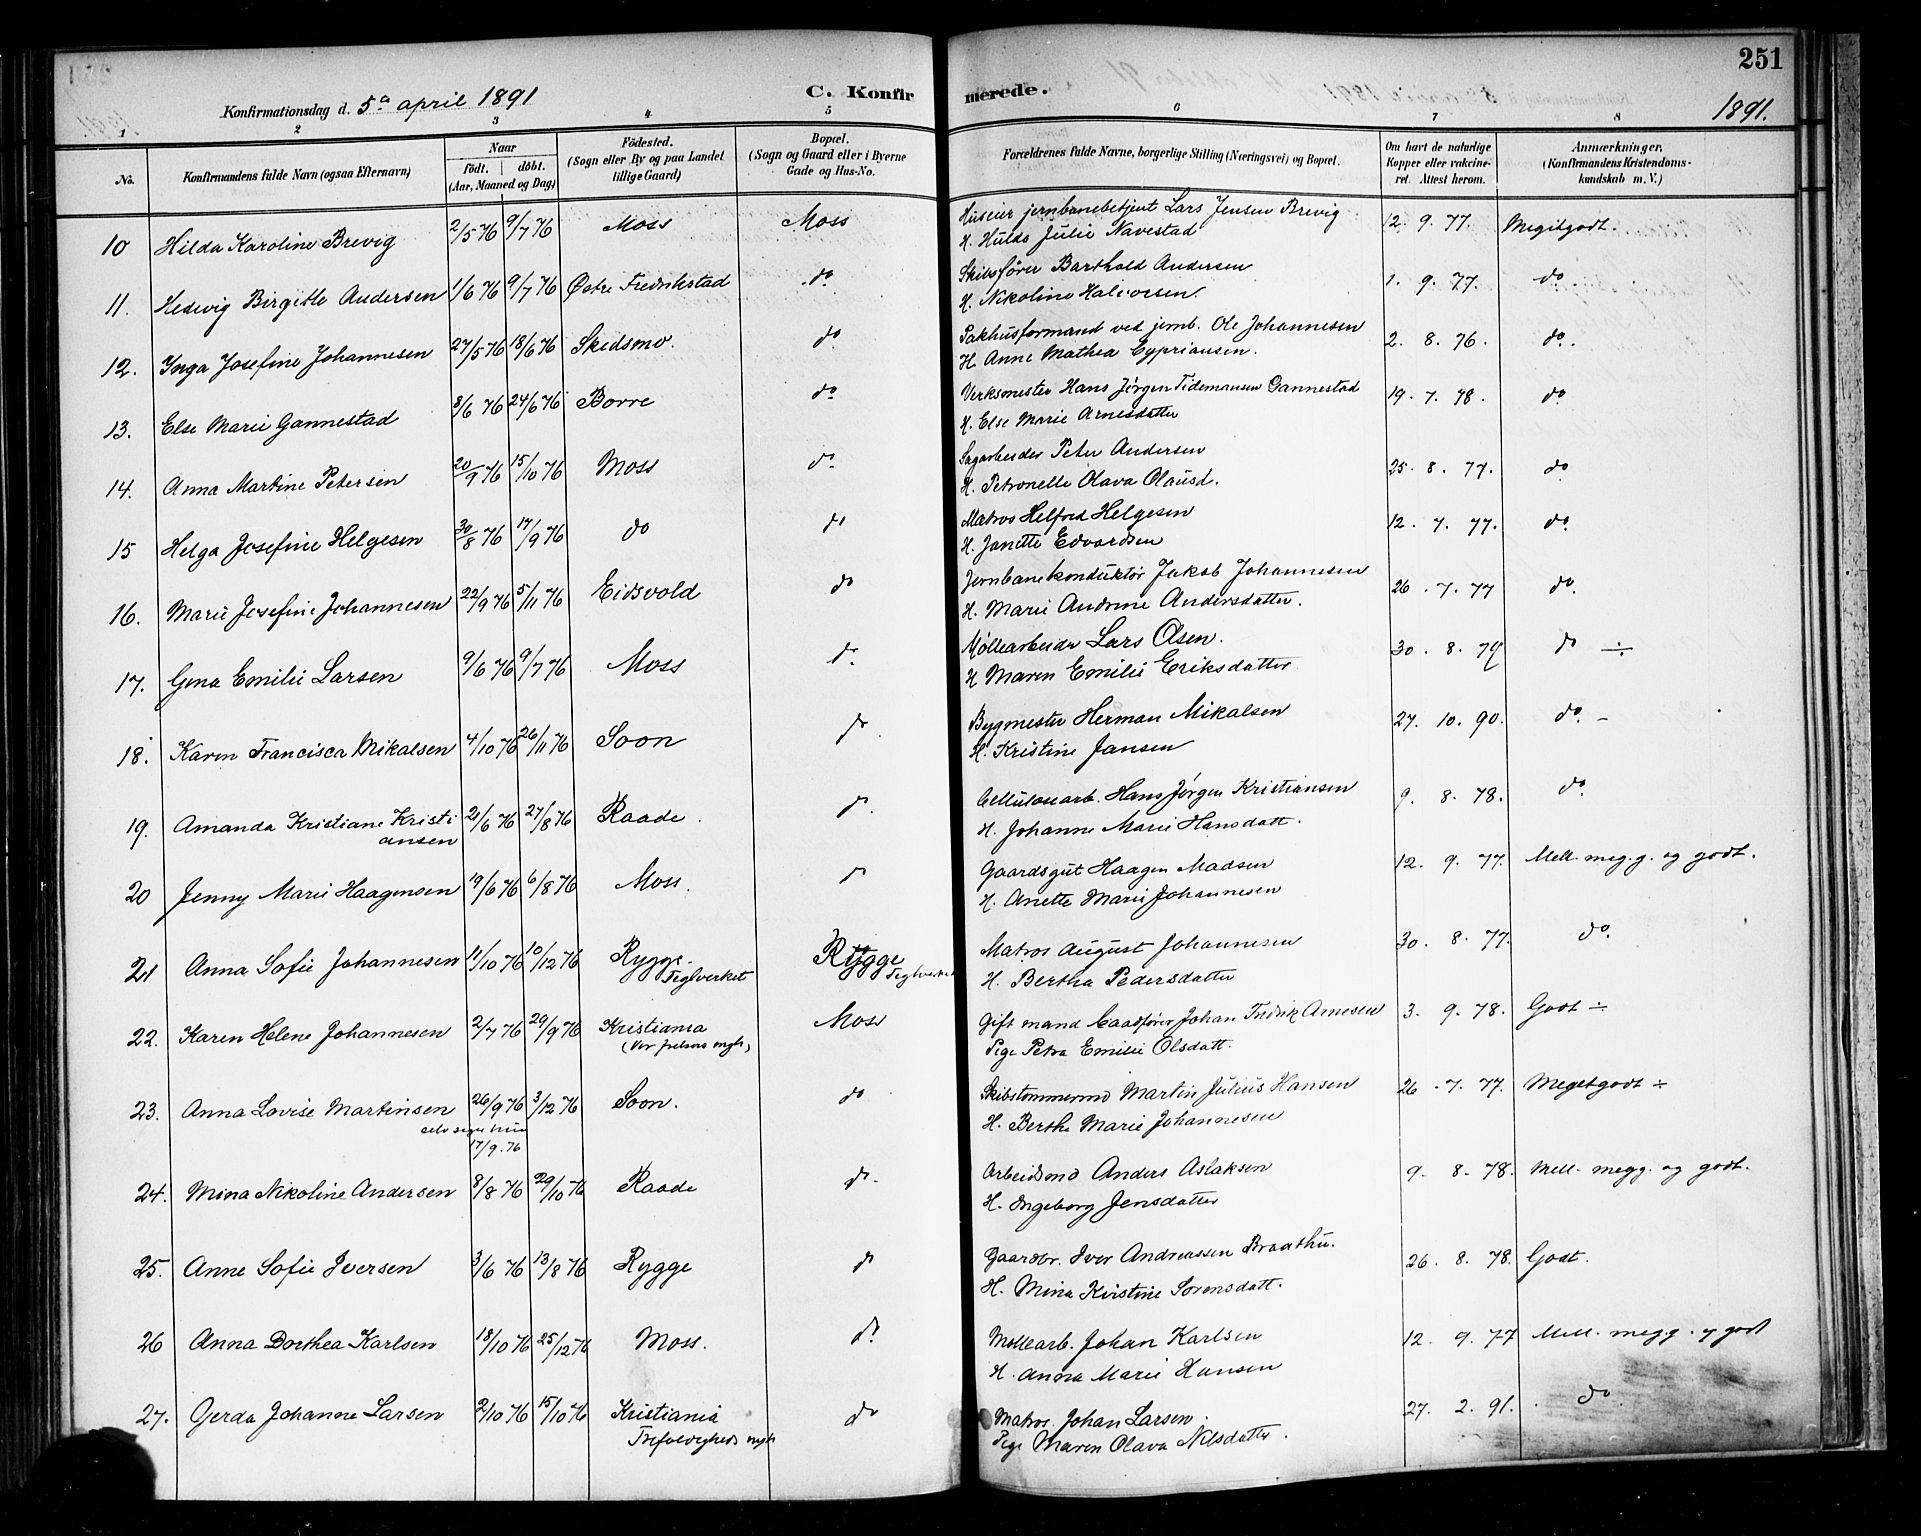 251
Konfirmationsdag d. 5te april 1891
C. Konfirmerede.
1891.
1 2 3 4 5 6 7 8
No.
Konfirmandens fulde Navn (ogsaa Efternavn)
Naar
født. døbt.
(Aar, Maaned og Dag)
Fødested.
(Sogn eller By og paa Landet
tillige Gaard)
Bopæl.
(Sogn og Gaard eller i Byerne
Gade og Hus-No.
Forældrenes fulde Navne, borgerlige Stilling (Næringsvei) og Bopæl.
Om havt de naturlige
Kopper eller vakcine-
ret. Attest herom.
Anmærkninger.
(Konfirmandens Kristendoms-
kundskab m. V.)
10 Hilda Karoline Brevig 2/5 76 9/7 76 Moss Moss Huseier jernbanebetjent Lars Jensen Brevig 12. 9. 77. Megetgodt.
H. Hulda Julie Navestad
11. Hedevig Birgitte Andersen 1/6 76 9/7 76 Østre Fredrikstad do Skibsfører Barthold Andersen 1. 9. 77. do.
H. Nikoline Halvorsen.
12. Inga Josefine Johannesen 27/5 76 18/6 76 Skidsmo. do Pakhusformand ved jernb. Ole Johannesen 2. 8. 76. do.
H. Anne Mathea Cypriansen.
13. Else Marie Gannestad 8/6 76 24/6 76 Borre do Verksmester Hans Jørgen Tidemansen Gannestad 19. 7. 78. do
H. Else Marie Arnesdatter
14. Anna Martine Petersen 20/9 76 15/10 76 Moss do. Sagarbeider Peter Andersen 25. 8. 77. do
H. Petronelle Olava Olausd.
15 Helga Josefine Helgesen 30/8 76 17/9 76 do do Matros Helfred Helgesen 12. 7. 77. do.
H. Janette Edvardsen
16. Marie Josefine Johannesen 22/9 76 5/11 76 Eidsvold do Jernbanekonduktør Jakob Johannesen 26. 7. 77 do.
H. Marie Andrine Andersdatter.
17. Gina Emilie Larsen 9/6 76 9/7 76 Moss do. Møllearbeider Lars Olsen. 30. 8. 79 do ÷
H Maren Emilie Eriksdatter
18. Karen Francisca Mikalsen 4/10 76 26/11 76 Soon do Bygmester Herman Mikalsen 27. 10. 90. do. -
H. Kristine Jansen
19. Amanda Kristiane Kristi 21/6 76 27/8 76 Raade. do. Cellulosearb. Hans Jørgen Kristiansen 9. 8. 78. do.
ansen H. Johanne Marie Hansdatt.
20 Jenny Marie Haagensen 19/6 76 6/8 76 Moss. do Gaardsgut Haagen Madsen 12. 9. 77. Mell. meg. g. og godt.
H. Anette Marie Johannesen
21 Anna Sofie Johannesen 11/10 76 10/12 76 Rygge. Rygge Matros August Johannesen 30. 8. 77. do.
Teglverket Teglverket H. Bertha Pedersdatter
22. Karen Helene Johannesen 2/7 76 29/9 76 Kristiania Moss Gift mand Baadfører Johan Fredrik Arnesen 3. 9. 78. Godt ÷
(Vor frelsers mgh.) Pige Petra Emilie Olsdatt.
23. Anna Lovise Martinsen 26/9 76 3/12 76 Soon. do Skibstømmermd Martin Julius Hansen 26. 7. 77. Megetgodt ÷
selv siger hun H. Berthe Marie Johannesen
17/9. 76
24. Mina Nikoline Andersen 8/8 76 29/10 76 Raade do. Arbeidsmd Anders Aslaksen 9. 8. 78. Mell. megg. og godt.
H. Ingeborg Jensdatter
25. Anne Sofie Iversen 3/6 76 13/8 76 Rygge do Gaardbr. Iver Andreassen Braathu. 26. 8. 78. Godt.
H. Mina Kristine Sørensdatt.
26 Anna Dorthea Karlsen 18/10 76 25/12 76 Moss. do. Møllearb. Johan Karlsen 12. 9. 77 Mell. megg. og godt
H. Anna Marie Hansen
27. Gerda Johanne Larsen 2/10 76 15/10 76 Kristiania do Matros. Johan Larsen. 27. 2. 91. do
Trefoldigheds mgh Pige Maren Olava Nilsdatter.